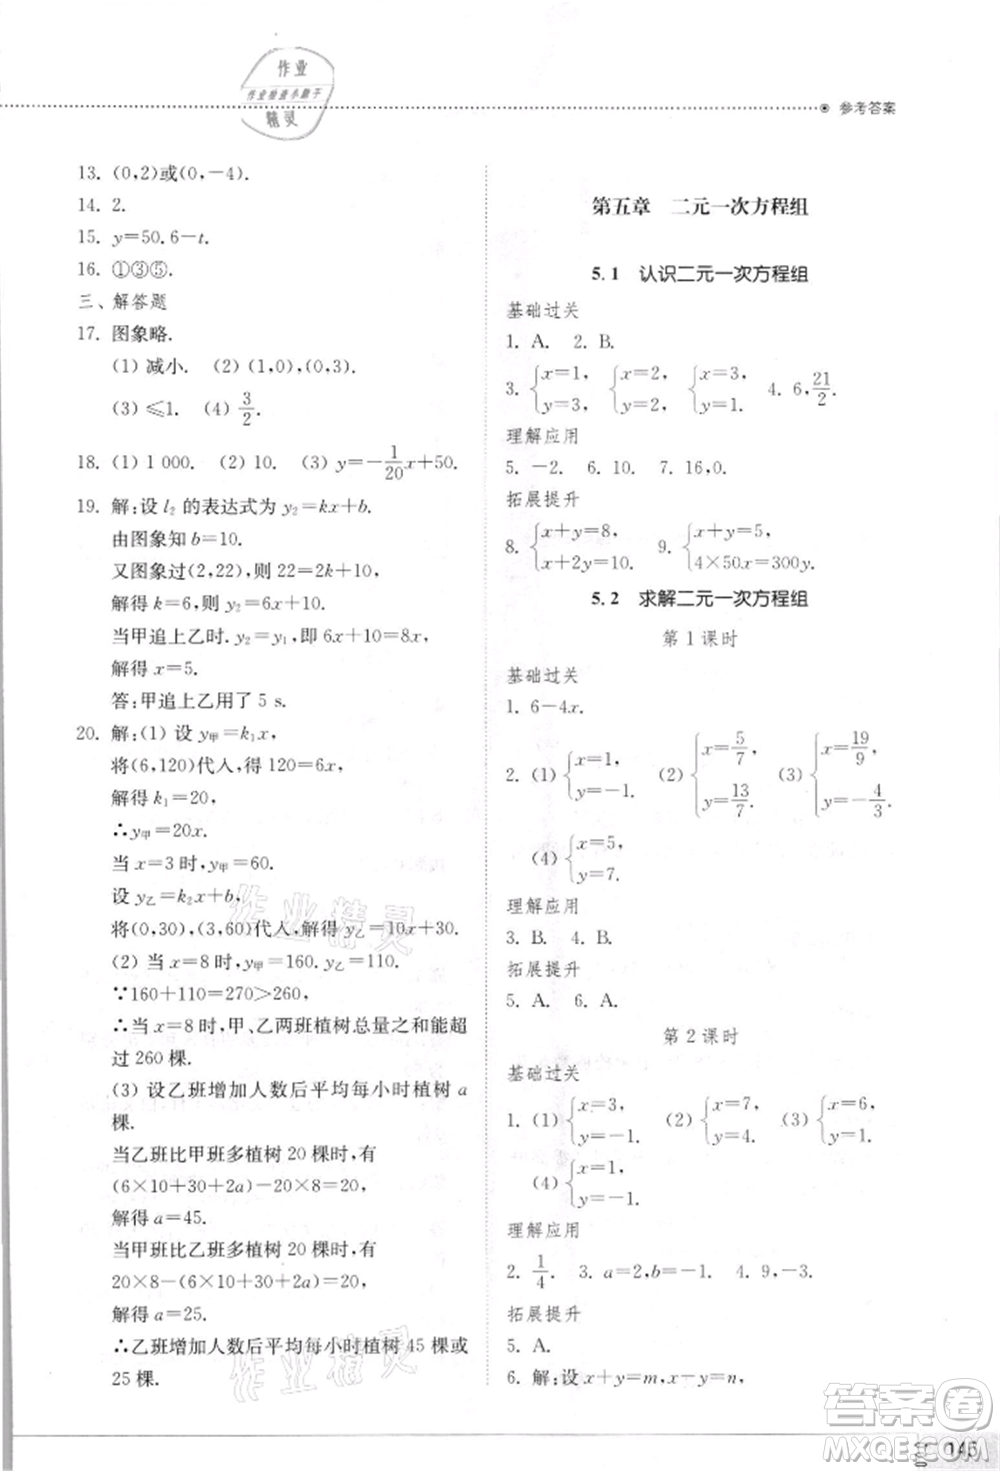 作业
作业检查小助手
精灵
参考答案
13. (0,2)或(0,-4).
14. 2.
15. y=50.6-t.
16. ①③⑤.
三、解答题
17. 图象略.
(1) 减小. (2) (1,0),(0,3)
(3) ≤1. (4) 3/2.
18. (1) 1 000. (2) 10. (3) y=-1/20x+50.
19. 解:设 l₂ 的表达式为 y₂=kx+b.
由图象知 b=10.
又图象过(2,22),则 22=2k+10,
解得 k=6,则 y₂=6x+10.
当甲追上乙时. y₂=y₁,即 6x+10=8x,
解得 x=5.
答:甲追上乙用了 5 s.
20. 解:(1) 设 y甲=k₁x,
将(6,120)代人,得 120=6x,
解得 k₁=20,
∴y甲=20x.
当 x=3 时,y甲=60.
设 y乙=k₂x+b,
将(0,30),(3,60)代人,解得 y乙=10x+30.
(2) 当 x=8 时,y甲=160. y乙=110.
∵160+110=270>260,
∴当 x=8 时,甲、乙两班植树总量之和能超
过 260 棵.
(3) 设乙班增加人数后平均每小时植树 a
棵.
当乙班比甲班多植树 20 棵时,有
(6×10+30+2a)-20×8=20,
解得 a=45.
当甲班比乙班多植树 20 棵时,有
20×8-(6×10+30+2a)=20,
解得 a=25.
∴乙班增加人数后平均每小时植树 45 棵或
25 棵.
第五章 二元一次方程组
5.1 认识二元一次方程组
基础过关
1. A. 2. B.
3. {x=1, y=3, {x=2, y=2, {x=3, y=1. 4. 6,21/2.
理解应用
5. -2. 6. 10. 7. 16,0.
拓展提升
8. {x+y=8, x+2y=10. 9. {x+y=5, 4×50x=300y.
5.2 求解二元一次方程组
第 1 课时
基础过关
1. 6-4x.
2. (1) {x=1, y=-1. (2) {x=5/7, y=13/7. (3) {x=19/9, y=-4/3.
(4) {x=5, y=7.
理解应用
3. B. 4. B.
拓展提升
5. A. 6. A.
第 2 课时
基础过关
1. (1) {x=3, y=-1. (2) {x=7, y=4. (3) {x=6, y=1.
(4) {x=1, y=-1.
理解应用
2. 1/4. 3. a=2,b=-1. 4. 9,-3.
拓展提升
5. A.
6. 解:设 x+y=m,x-y=n,
作业精灵
作业精灵
答案卷
MXQE.COM
145